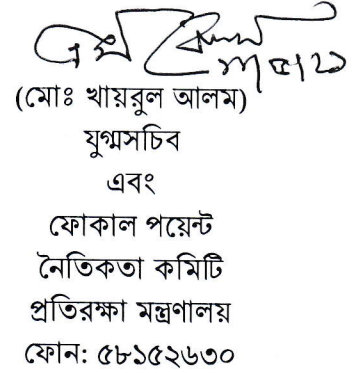 (মোঃ খায়রুল আলম)
যুগ্মসচিব
এবং
ফোকাল পয়েন্ট
নৈতিকতা কমিটি
প্রতিরক্ষা মন্ত্রণালয়
ফোন: ৫৮১৫২৬৩০